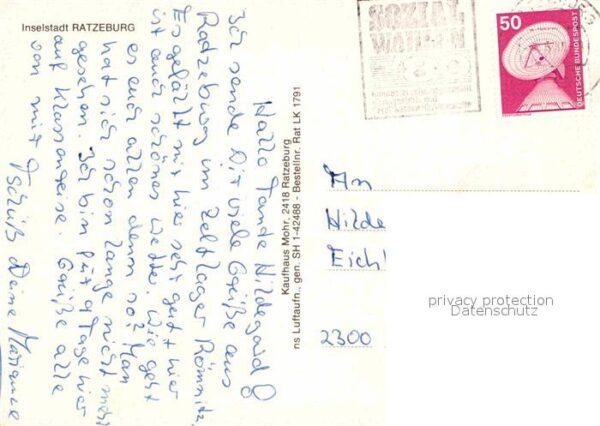 Inselstadt RATZEBURG
Hallo Tante Hildegard!
Ich sende Dir viele Grüße aus
Ratzeburg im Zeltlager Römnitz.
Es gefällt mir hier sehr gut. Hier
ist auch schönes Wetter. Wie geht
es euch allen denn so? Man
hat sich schon lange nicht mehr
gesehen. Ich bin für 9 Tage hier
auf Klassenreise. Grüße alle
von mir. Tschüß Deine Marianne
Kaufhaus Mohr, 2418 Ratzeburg
ns Luftaufn., gen. SH 1-42488 - Bestellnr. Rat LK 1791
SOZIAL
WAHLEN
50
DEUTSCHE BUNDESPOST
An
Hilde
Eich
2300
privacy protection
Datenschutz